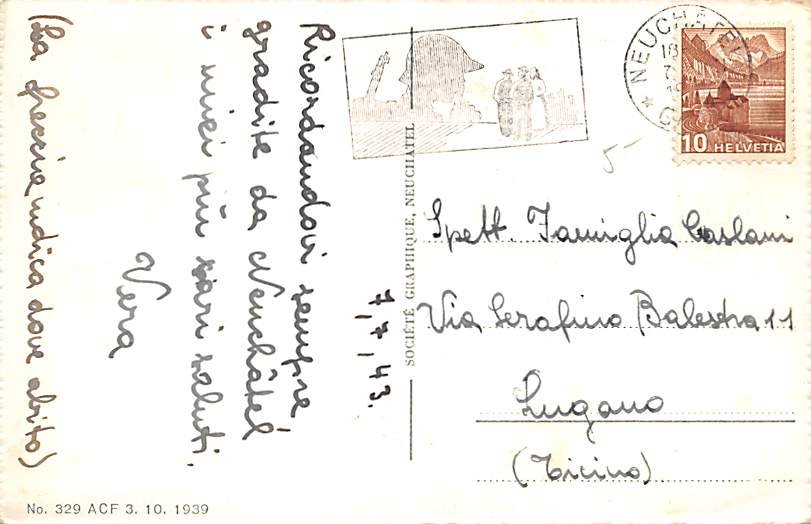 Ricordandovi sempre,
gradite da Neuchâtel
i miei più cari saluti.
Vera
(La freccia indica dove abito)
7,7,43.
SOCIÉTÉ GRAPHIQUE, NEUCHATEL
NEUCHÂTEL
18
10 HELVETIA
5-
Spett. Famiglia Caslani
Via Serafino Balestra 11
Lugano
(Ticino)
No. 329 ACF 3. 10. 1939